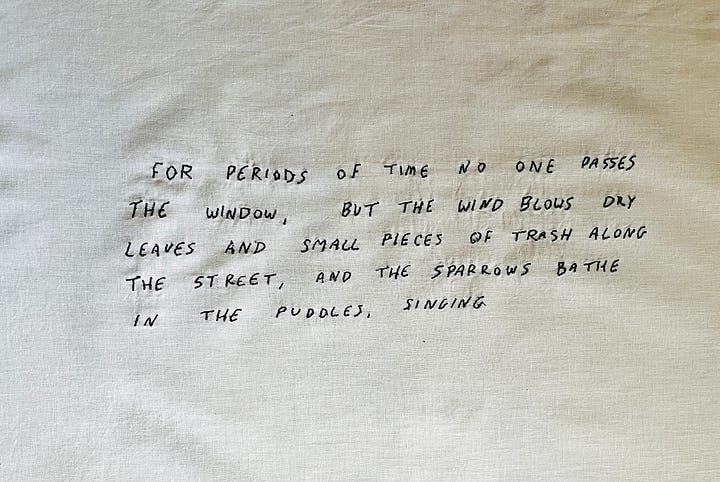 FOR PERIODS OF TIME NO ONE PASSES
THE WINDOW, BUT THE WIND BLOWS DRY
LEAVES AND SMALL PIECES OF TRASH ALONG
THE STREET, AND THE SPARROWS BATHE
IN THE PUDDLES, SINGING